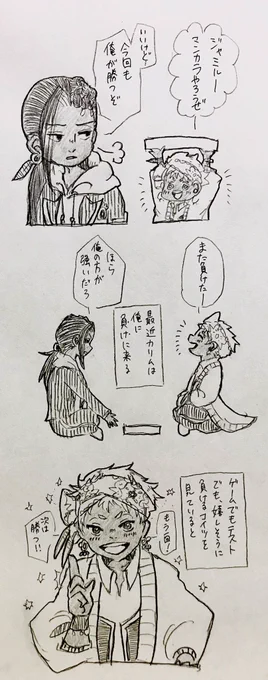 ジャミルー
マンカラやろうぜ
いいけど
今回も
俺が勝つぞ
また負けたー
ほら
俺の方が
強いだろ
最近カリムは
俺に
負けに来る
ゲームでもテスト
でも、嬉しそうに
負けるコイツを
見ていると
もう一回!
次は
勝つ!!